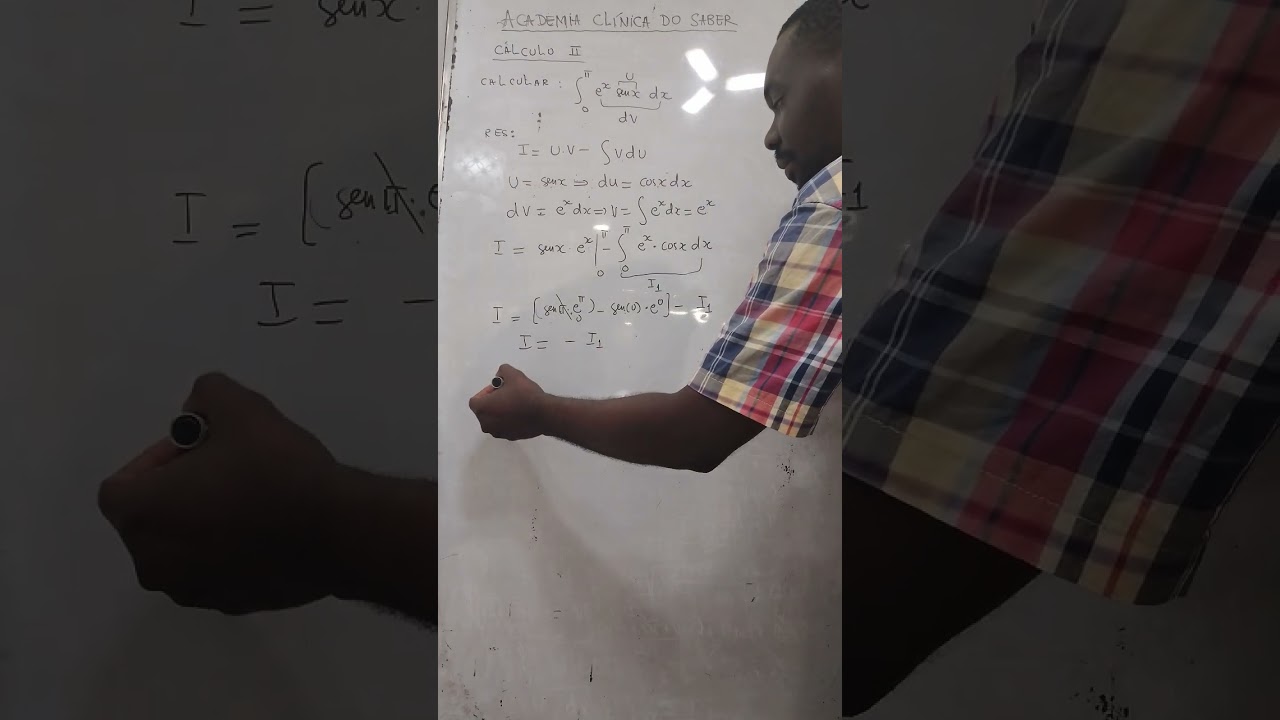 ACADEMIA CLÍNICA DO SABER
CÁLCULO II
CALCULAR: ∫₀^π e^x senx dx
U
dV
RES:
I = U.V - ∫VdU
U = senx ⇒ dU = cosxdx
dV = e^x dx ⇒ V = ∫e^x dx = e^x
I = senx · e^x |₀^π - ∫₀^π e^x · cosx dx
I₁
I = [sen(π)·e^π - sen(0)·e^0] - I₁
0
I = - I₁